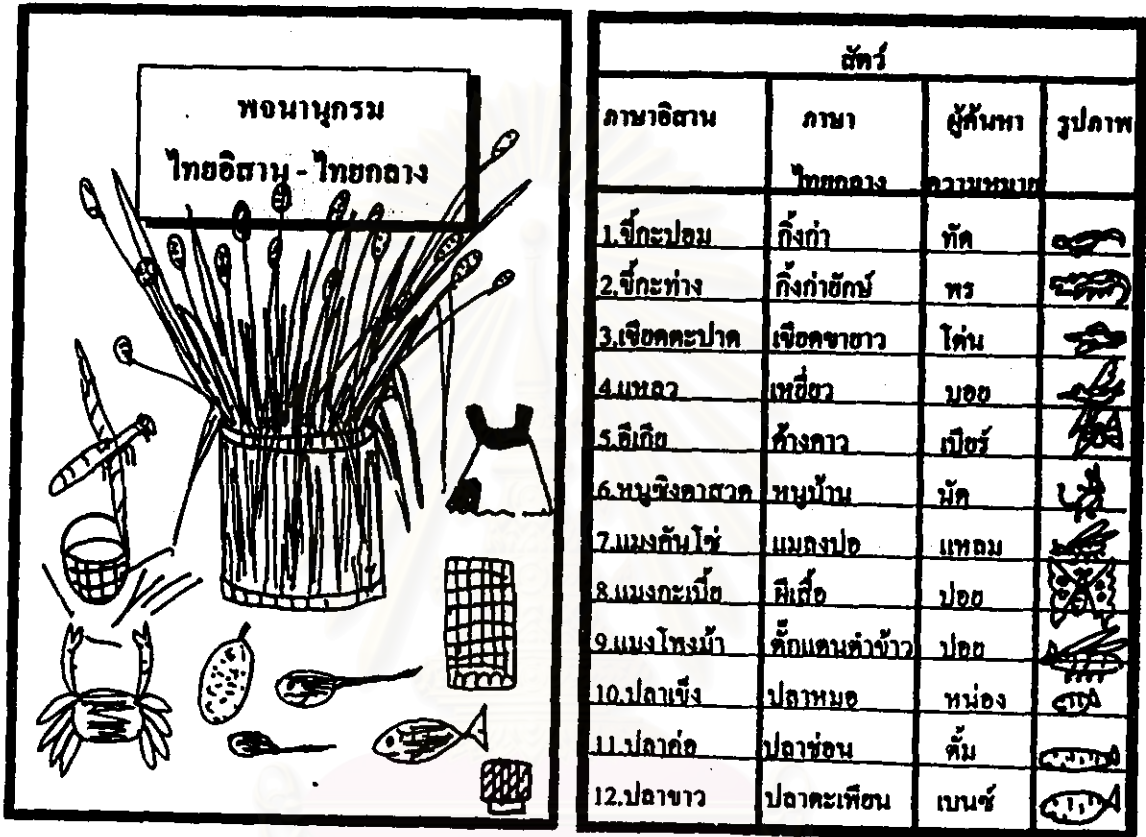 พจนานุกรม
ไทยอิสาน - ไทยกลาง
สัตว์
ภาษาอิสาน ภาษา ผู้ค้นหา รูปภาพ
ไทยกลาง ความหมาย
1.ขี้กะปอม กิ้งก่า ทัด
2.ขี้กะท่าง กิ้งก่ายักษ์ พร
3.เขียดตะปาด เขียดขายาว โด่น
4.แหลว เหยี่ยว บอย
5.อีเกีย ค้างคาว เบียร์
6.หนูซิงคาสวด หนูบ้าน นัด
7.แมงคันโซ่ แมลงปอ แหลม
8.แมงกะเบี้ย ผีเสื้อ ปอย
9.แมงโหงม้า ตั๊กแตนตำข้าว ปอย
10.ปลาเข็ง ปลาหมอ หน่อง
11.ปลาค่อ ปลาช่อน ตั้ม
12.ปลาขาว ปลาตะเพียน เบนซ์